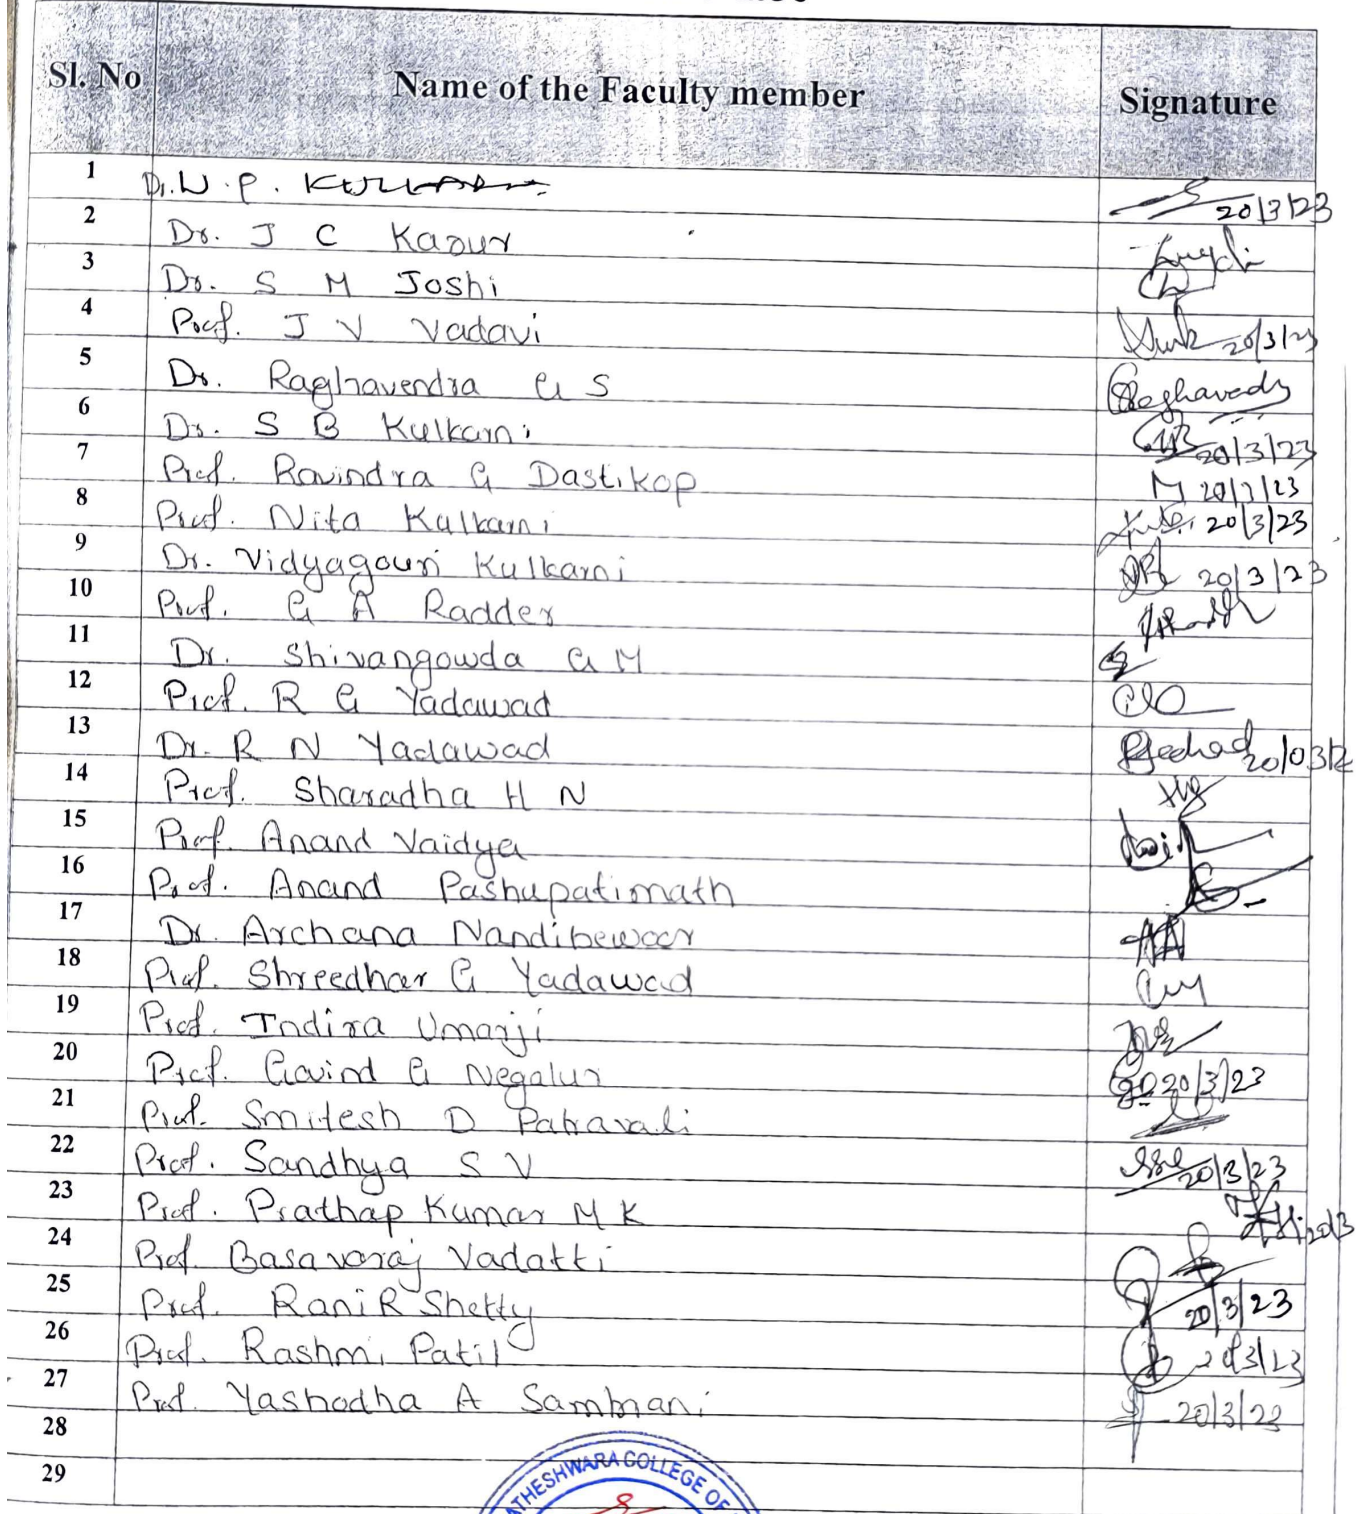 Sl. No Name of the Faculty member Signature
1 Dr. U. P. KULKARNI 20/3/23
2 Dr. J C Karur
3 Dr. S M Joshi
4 Prof. J V Vadavi 20/3/23
5 Dr. Raghavendra G S Raghavendra
6 Dr. S B Kulkarni 20/3/23
7 Prof. Ravindra G Dastikop 20/3/23
8 Prof. Nita Kulkarni 20/3/23
9 Dr. Vidyagouri Kulkarni 20/3/23
10 Prof. G A Radder
11 Dr. Shivangowda G M
12 Prof. R G Yadawad
13 Dr. R N Yadawad 20/03/2
14 Prof. Sharadha H N
15 Prof. Anand Vaidya
16 Prof. Anand Pashupatimath
17 Dr. Archana Nandibewoor
18 Prof. Shreedhar G Yadawad
19 Prof. Indira Umarji
20 Prof. Govind G Negalur 20/3/23
21 Prof. Smitesh D Patravali
22 Prof. Sandhya S V 20/3/23
23 Prof. Prathap Kumar M K 20/3
24 Prof. Basavaraj Vadatti
25 Prof. Rani R Shetty 20/3/23
26 Prof. Rashmi Patil 20/3/23
27 Prof. Yashodha A Sambrani 20/3/23
28
29
ATHESHWARA COLLEGE OF